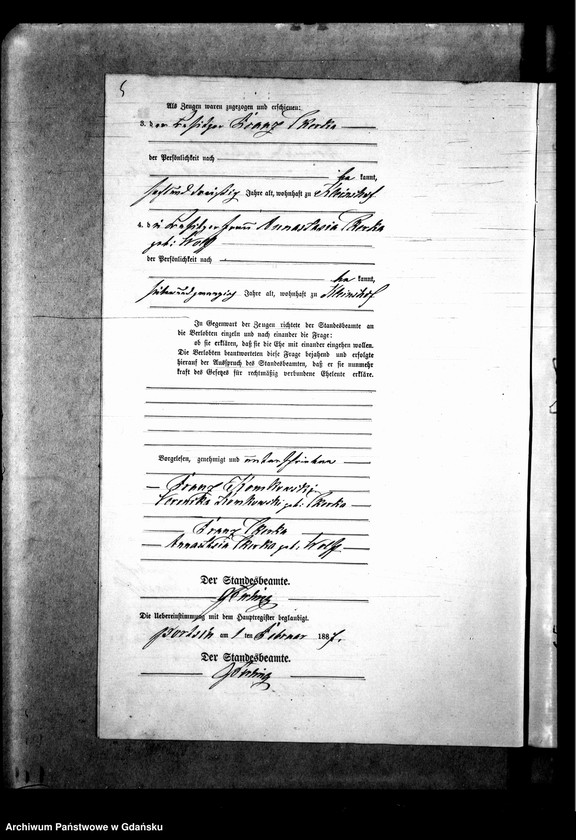 5
Als Zeugen waren zugezogen und erschienen:
3. der Besitzer Franz Skorka
der Persönlichkeit nach
be kannt,
sechsunddreißig Jahre alt, wohnhaft zu Kleinshof
4. die Besitzerfrau Annastasia Skorka
geb: Wolf
der Persönlichkeit nach
be kannt,
siebenundzwanzig Jahre alt, wohnhaft zu Kleinshof.
In Gegenwart der Zeugen richtete der Standesbeamte an
die Verlobten einzeln und nach einander die Frage:
ob sie erklären, daß sie die Ehe mit einander eingehen wollen.
Die Verlobten beantworteten diese Frage bejahend und erfolgte
hierauf der Ausspruch des Standesbeamten, daß er sie nunmehr
kraft des Gesetzes für rechtmäßig verbundene Eheleute erkläre.
Vorgelesen, genehmigt und unterschrieben
Franz
Veronika geb: Skorka
Franz Skorka
Annastasia Skorka geb: Wolf
Der Standesbeamte.
Die Uebereinstimmung mit dem Hauptregister beglaubigt.
am 1 ten Februar 1887.
Der Standesbeamte.
Archiwum Państwowe w Gdańsku